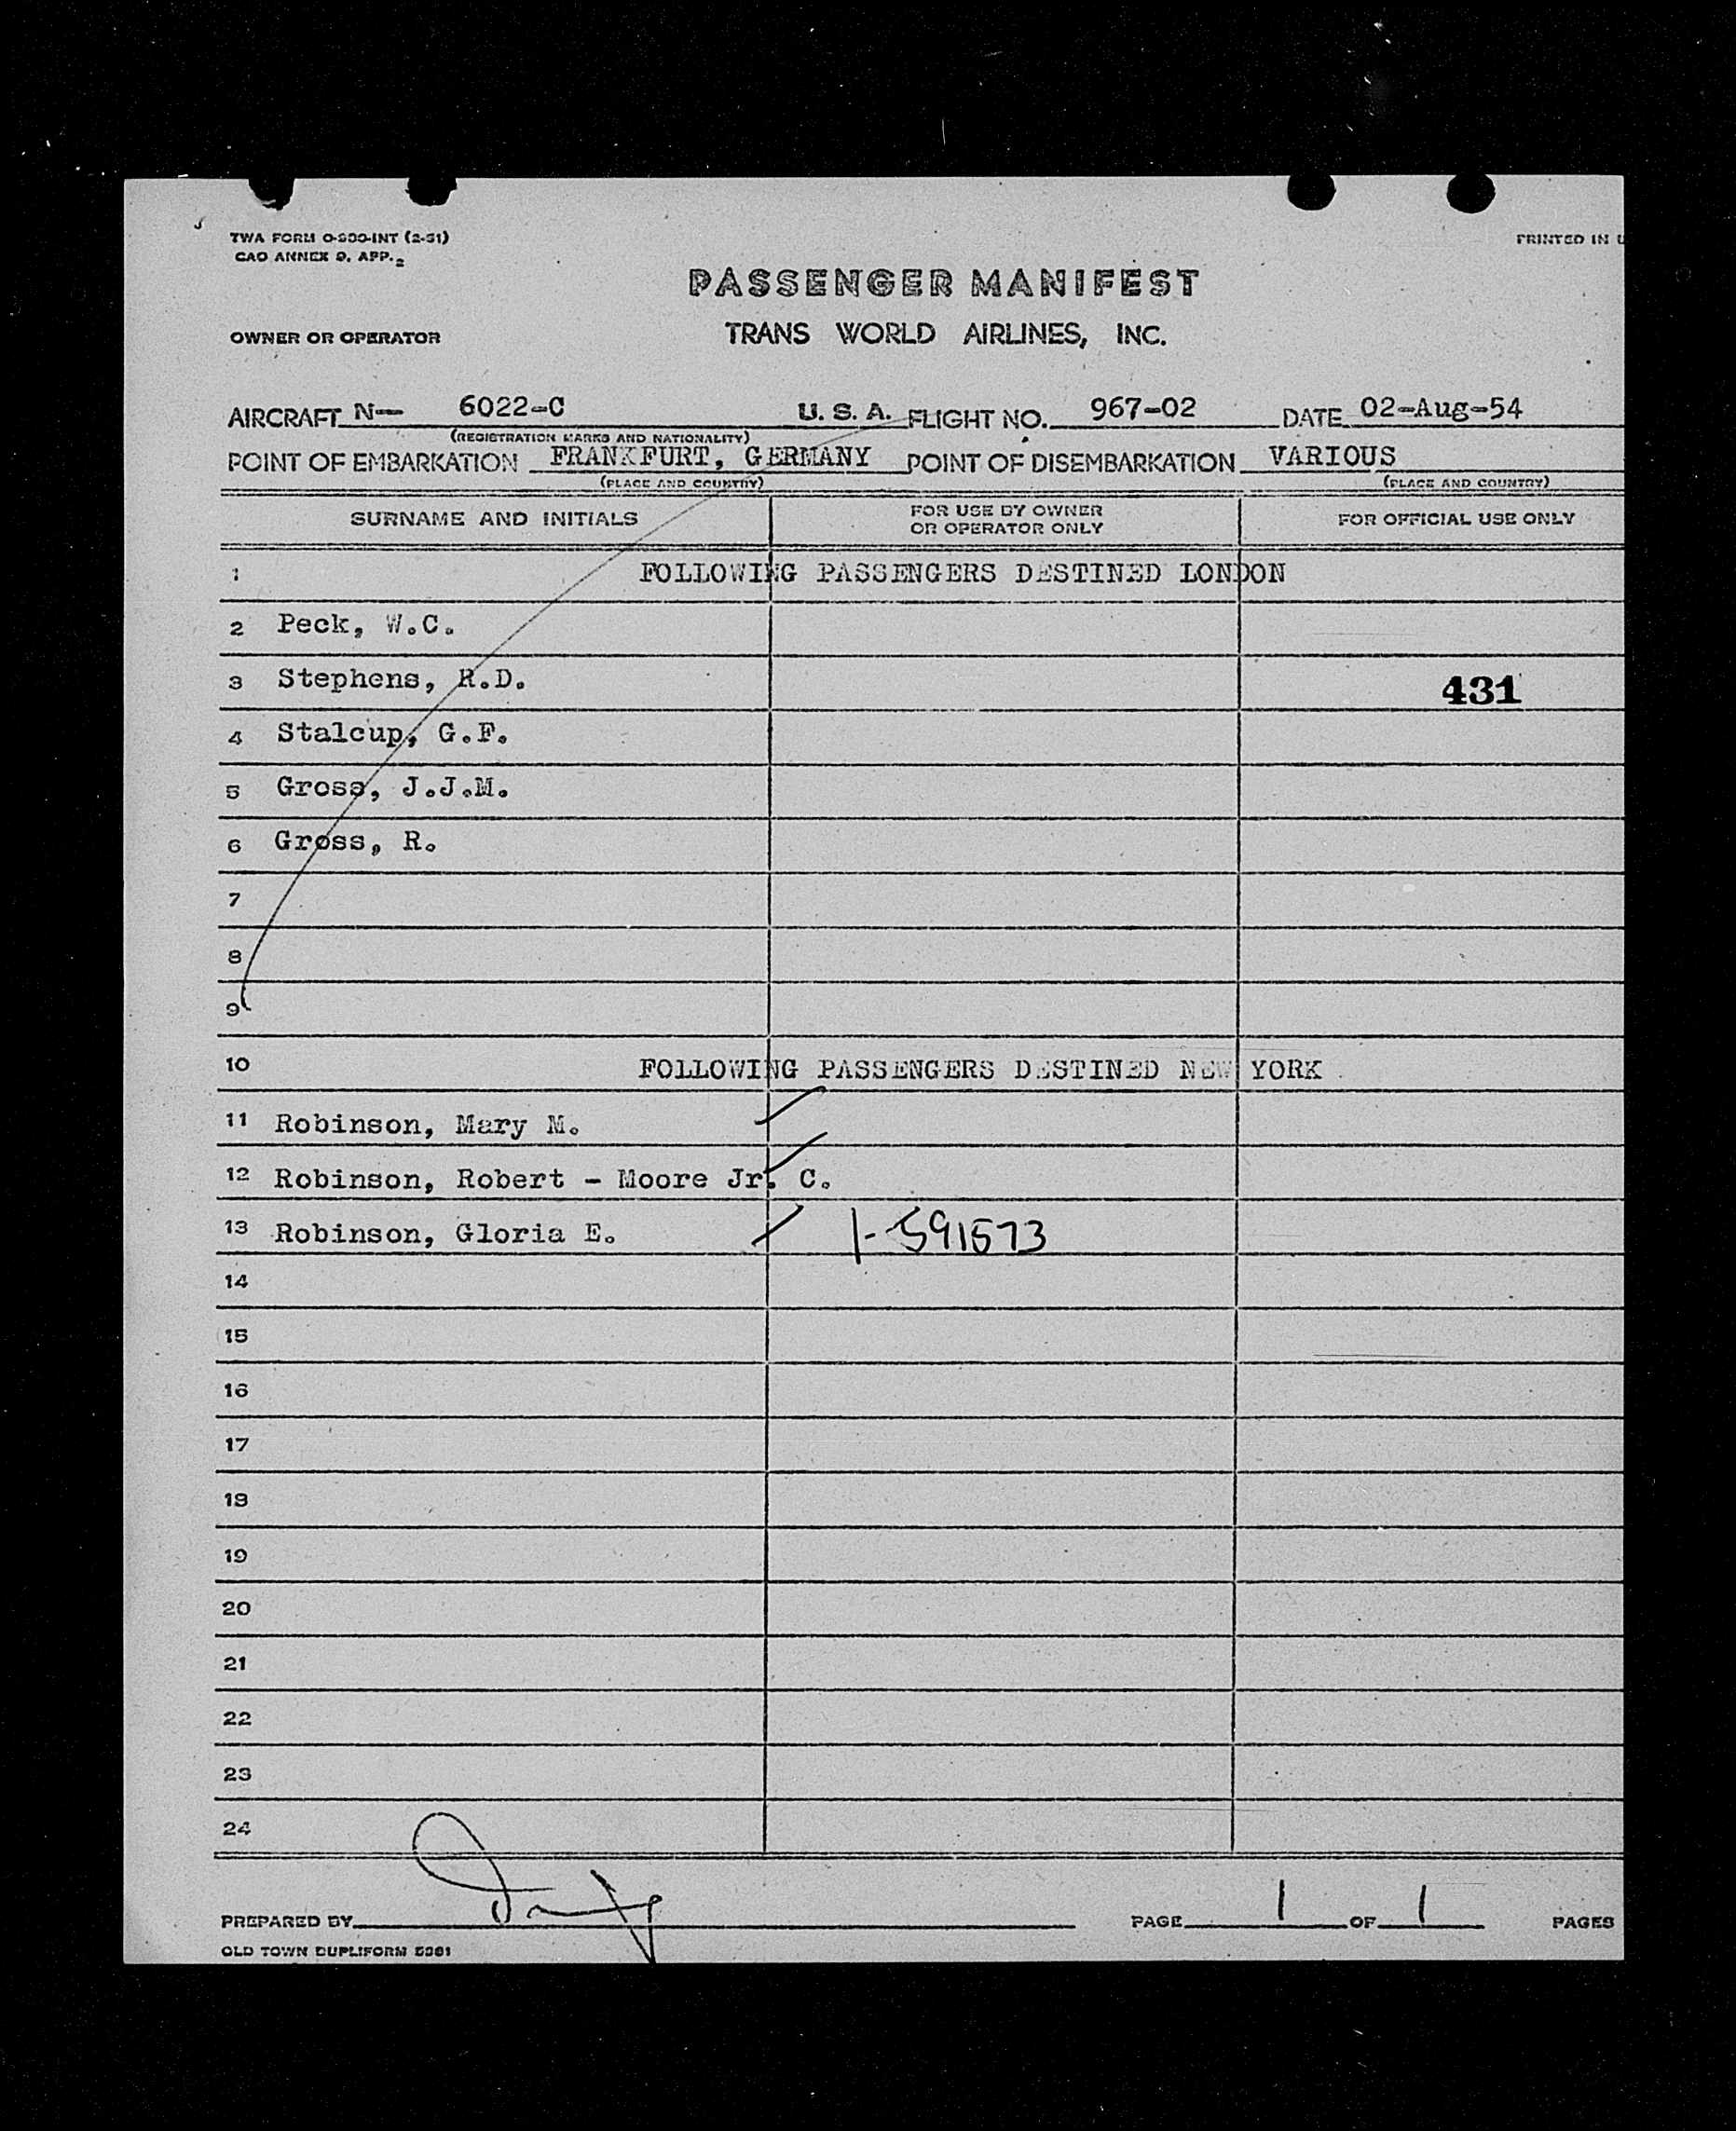 TWA FORM O-300-INT (2-51)
CAO ANNEX 9, APP. 2
PRINTED IN U
PASSENGER MANIFEST
OWNER OR OPERATOR
TRANS WORLD AIRLINES, INC.
AIRCRAFT N— 6022-C U. S. A. FLIGHT NO. 967-02 DATE 02-Aug-54
(REGISTRATION MARKS AND NATIONALITY)
POINT OF EMBARKATION FRANKFURT, GERMANY POINT OF DISEMBARKATION VARIOUS
(PLACE AND COUNTRY) (PLACE AND COUNTRY)
SURNAME AND INITIALS FOR USE BY OWNER OR OPERATOR ONLY FOR OFFICIAL USE ONLY
1 FOLLOWING PASSENGERS DESTINED LONDON
2 Peck, W.C.
3 Stephens, R.D. 431
4 Stalcup, G.F.
5 Gross, J.J.M.
6 Gross, R.
7
8
9
10 FOLLOWING PASSENGERS DESTINED NEW YORK
11 Robinson, Mary M.
12 Robinson, Robert - Moore Jr. C.
13 Robinson, Gloria E. 1-591573
14
15
16
17
18
19
20
21
22
23
24
PREPARED BY PAGE 1 OF 1 PAGES
OLD TOWN DUPLIFORM